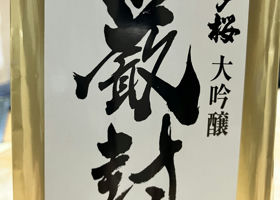 桜 大吟醸
厳封